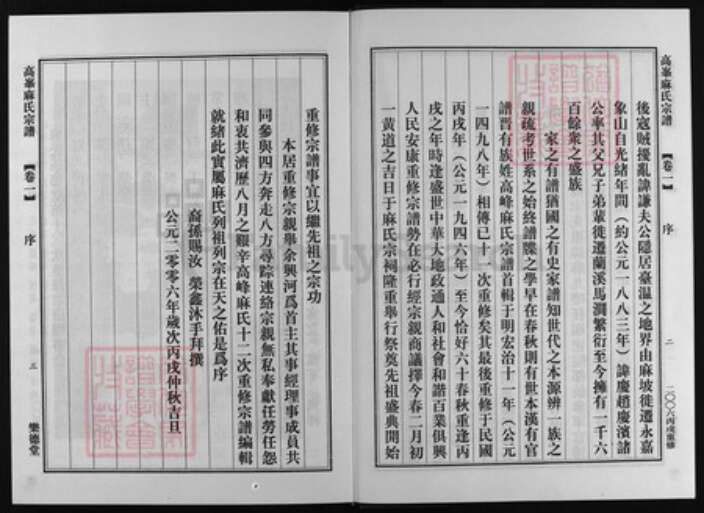 高峯麻氏宗譜
【卷一】
序
二
二〇〇六丙戌重修
後寇賊擾亂諱謙夫公隱居臺溫之地界由麻坡徙遷永嘉
象山自光緒年間（約公元一八八三年）諱慶趙慶濱諸
公率其父兄子弟輩徙遷蘭溪馬澗繁衍至今擁有一千六
百餘衆之盛族
家之有譜猶國之有史家譜知世代之本源辨一族之
親疏考世系之始終譜牒之學早在春秋則有世本漢有官
譜晋有族姓高峰麻氏宗譜首輯于明宏治十一年（公元
一四九八年）相傳已十一次重修矣其最後重修于民國
丙戌年（公元一九四六年）至今恰好六十春秋重逢丙
戌之年時逢盛世中華大地政通人和社會和諧百業俱興
人民安康重修宗譜勢在必行經宗親商議擇今春二月初
一黄道之吉日于麻氏宗祠隆重舉行祭奠先祖盛典開始
重修宗譜事宜以繼先祖之宗功
本居重修宗親舉余興河爲首主其事經理事成員共
同參與四方奔走八方尋踪連絡宗親無私奉獻任勞任怨
和衷共濟歷八月之艱辛高峰麻氏十二次重修宗譜編輯
就緒此實屬麻氏列祖列宗在天之佑是爲序
裔孫賜汝 榮鑫沐手拜撰
公元二零零六年歲次丙戌仲秋吉旦
高峯麻氏宗譜
【卷一】
序
三
樂德堂